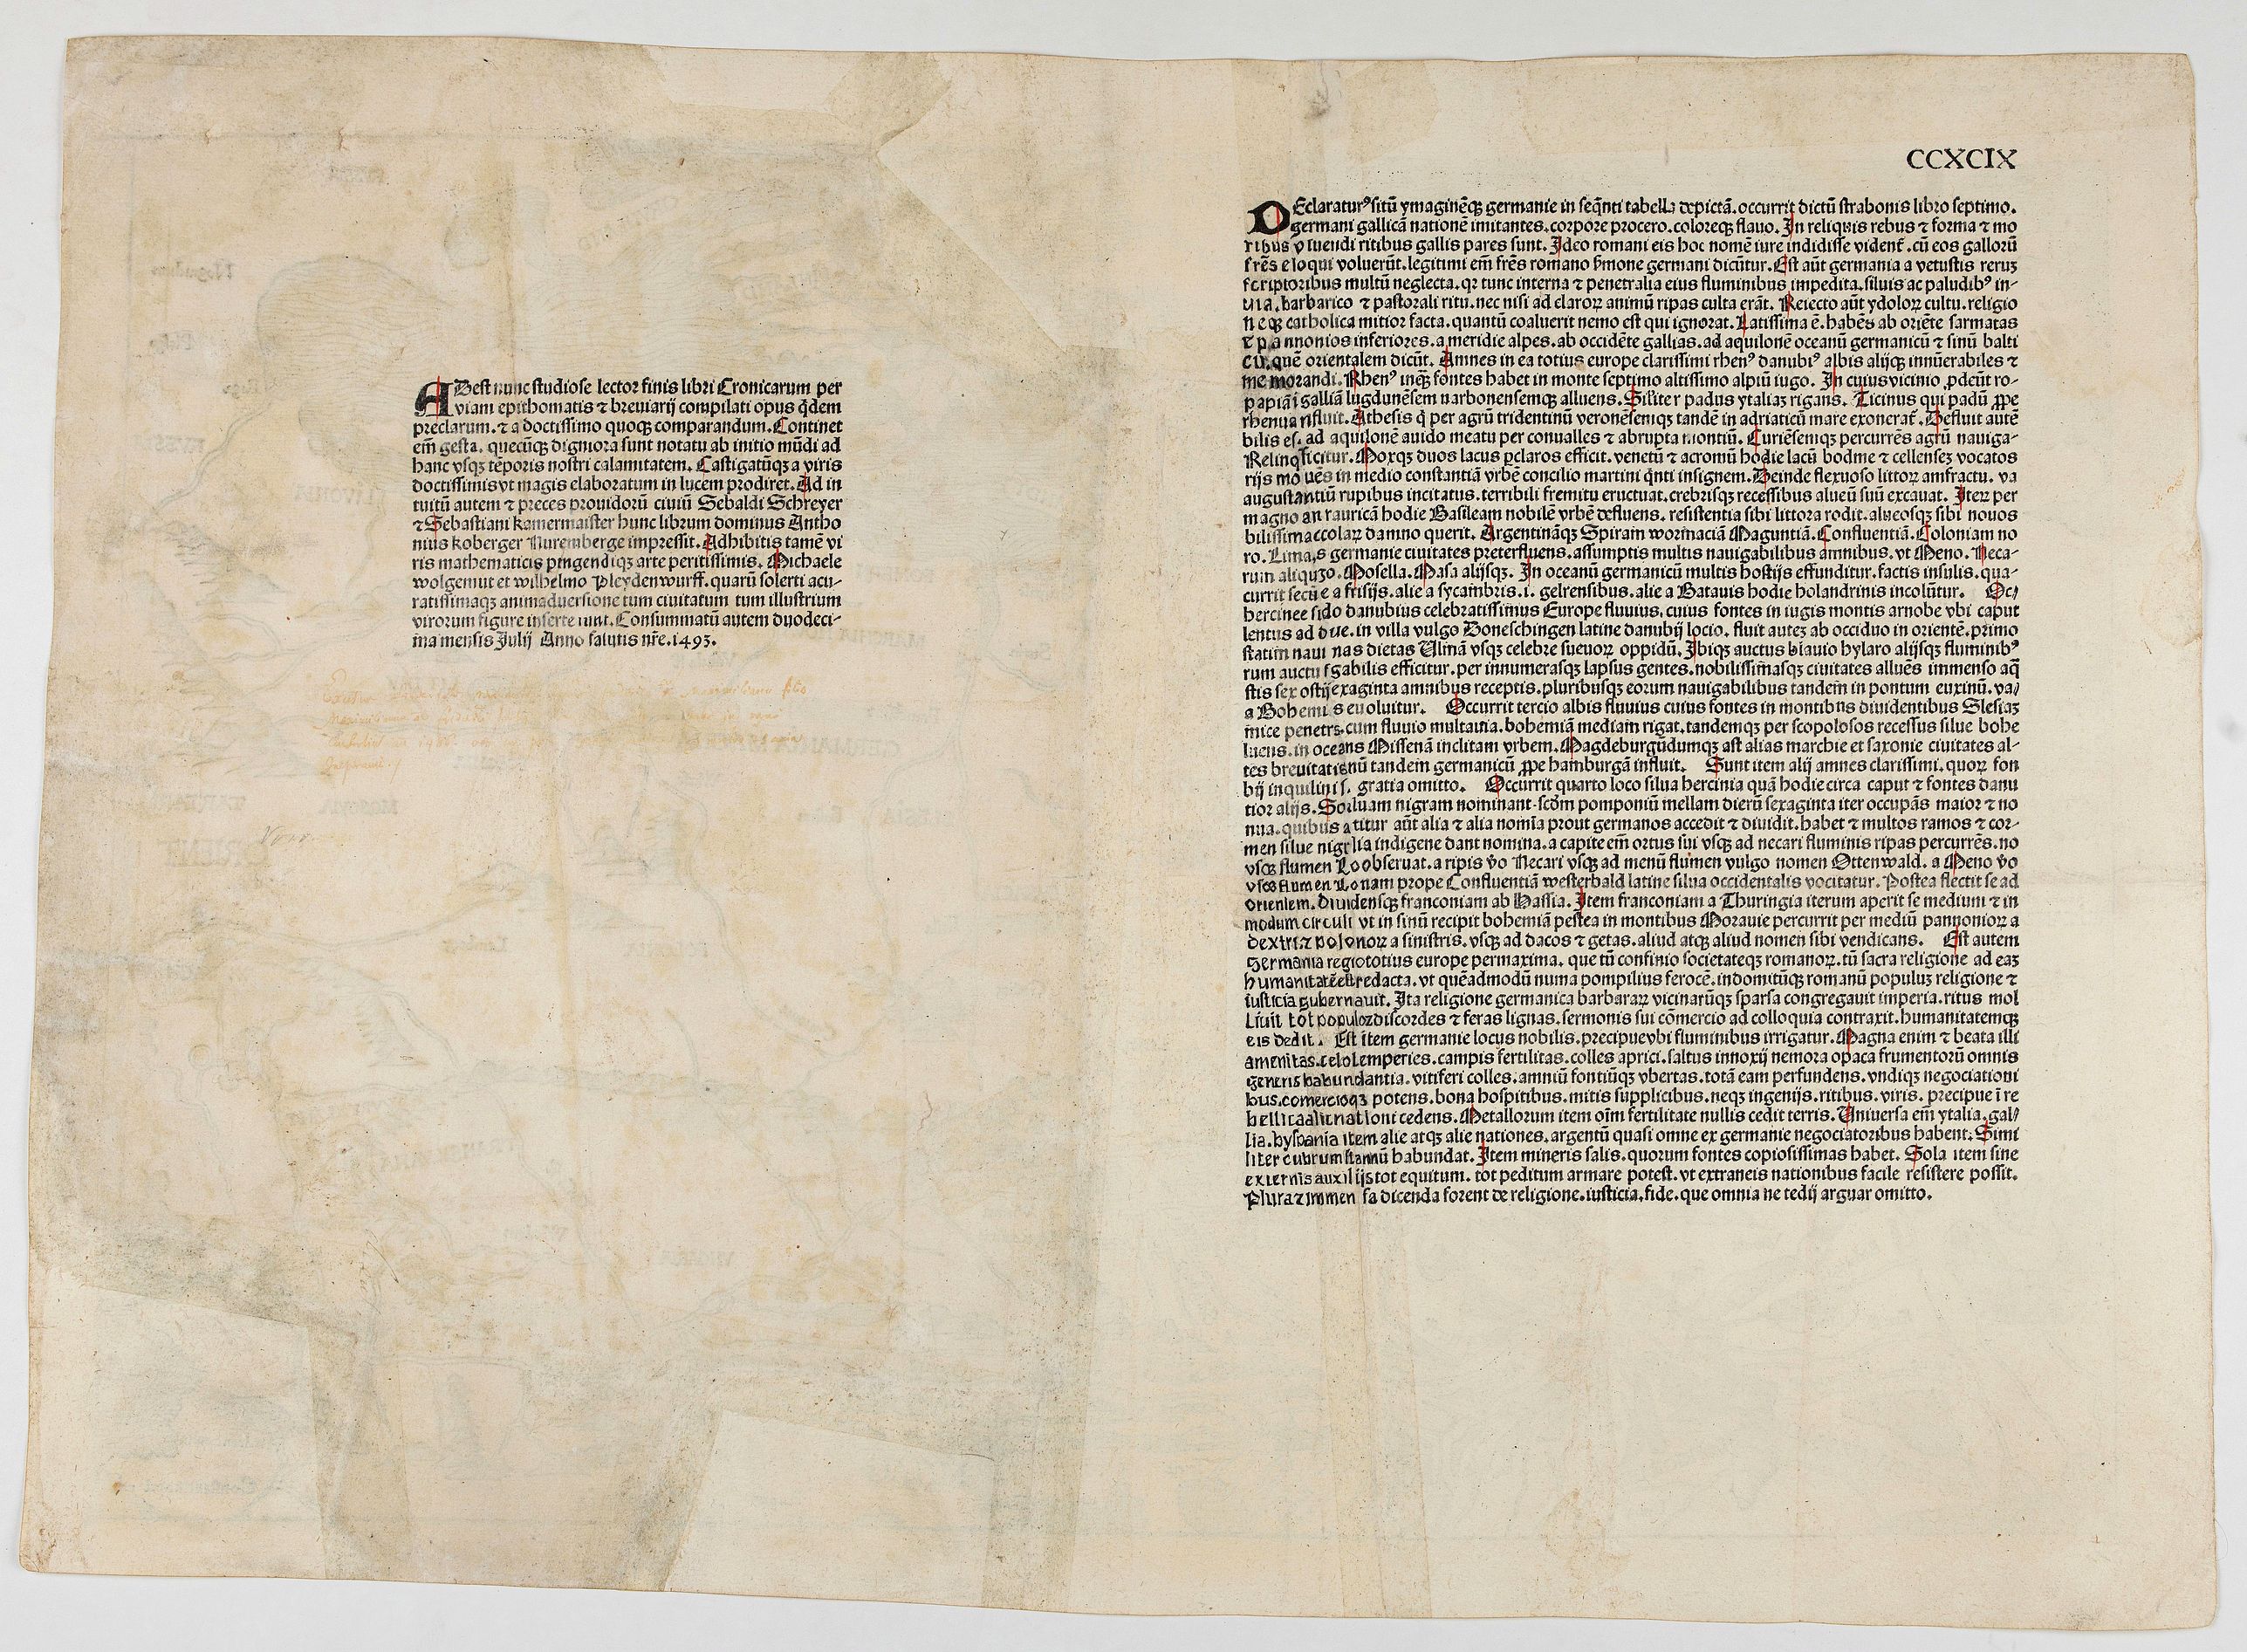 ADest nunc studiose lector finis libri Cronicarum per
viam epithomatis ⁊ breuiarij compilati opus q̄dem
preclarum. ⁊ a doctissimo quoqꝫ comparandum. Continet
em̄ gesta. quecūqꝫ digniora sunt notatu ab initio mūdi ad
hanc vsqꝫ tēporis nostri calamitatem. Castigatūqꝫ a viris
doctissimis vt magis elaboratum in lucem prodiret. Ad in
tuitū autem ⁊ preces prouidorū ciuiū Sebaldi Schreyer
⁊ Sebastiani kamermaister hunc librum dominus Antho
nius koberger Nuremberge impressit. Adhibitis tamē vi
ris mathematicis pingendiqꝫ arte peritissimis. Michaele
wolgemut et wilhelmo Pleydenwurff. quarū solerti acu-
ratissimaqꝫ animaduersione tum ciuitatum tum illustrium
virorum figure inserte sunt. Consummatū autem duodeci-
ma mensis Julij Anno salutis nr̄e. 1493.
CCXCIX
DEclaraturꝰ sitū ymaginēqꝫ germanie in seq̄nti tabella depictā. occurrit dictū strabonis libro septimo.
germani gallicā nationē imitantes. corpore procero. coloreqꝫ flauo. In reliquis rebus ⁊ forma ⁊ mo
ribus ⁊ viuendi ritibus gallis pares sunt. Ideo romani eis hoc nomē iure indidisse vident̄. cū eos gallorū
fr̄es eloqui voluerūt. legitimi em̄ fr̄es romano s̄mone germani dicūtur. Est aūt germania a vetustis reruꝫ
scriptoribus multū neglecta. qꝛ tunc interna ⁊ penetralia eius fluminibus impedita. siluis ac paludibꝰ in-
uia. barbarico ⁊ pastorali ritu. nec nisi ad claroꝝ animū ripas culta erāt. Reiecto aūt ydoloꝝ cultu. religio
neqꝫ catholica mitior facta. quantū coaluerit nemo est qui ignorat. Latissima ē. habēs ab oriēte sarmatas
⁊ pannonios inferiores. a meridie alpes. ab occidēte gallias. ad aquilonē oceanū germanicū ⁊ sinū balti
cū. quē orientalem dicūt. Amnes in ea totius europe clarissimi rhenꝰ danubiꝰ albis alijqꝫ innūerabiles ⁊
memorandi. Rhenꝰ ineqꝫ fontes habet in monte septimo altissimo alpiū iugo. In cuius vicinio ꝓdeūt ro-
papiāi galliā lugdunēsem narbonensemqꝫ alluens. Siliter padus ytaliaꝫ rigans. Ticinus qui padū ꝓpe
rhenua nfluit. Athesis q̄ per agrū tridentinū veronēsemqꝫ tandē in adriaticū mare exonerat̄. Defluit autē
bilis es. ad aquilonē auido meatu per conualles ⁊ abrupta montiū. Curiēsemqꝫ percurrēs agrū nauiga-
Relinq̄ficitur. Moxqꝫ duos lacus ꝑclaros efficit. venetū ⁊ acromū hodie lacū bodme ⁊ cellenseꝫ vocatos
rijs mo uēs in medio constantiā vrbē concilio martini q̄nti insignem. Deinde flexuoso littoꝝ amfractu. va
augustantiū rupibus incitatus. terribili fremitu eructuat. crebrisqꝫ recessibus alueū suū excauat. Iteꝝ per
magno an rauricā hodie Basileam nobilē vrbē defluens. resistentia sibi littora rodit. alueosqꝫ sibi nouos
bilissimaccolaꝝ damno querit. Argentināqꝫ Spiram wormaciā Maguntiā. Confluentiā. Coloniam no
ro. Lima,s germanie ciuitates preterfluens. assumptis multis nauigabilibus amnibus. vt Meno. Neca-
rum aliquꝫo. Mosella. Masa alijsqꝫ. In oceanū germanicū multis hostijs effunditur. factis insulis. qua-
currit secūe a frisijs. alie a sycambris. i. gelrensibus. alie a Batauis hodie holandrinis incolūtur. Oc/
hercinee sido danubius celebratissimus Europe fluuius. cuius fontes in iugis montis arnobe vbi caput
lentus ad due. in villa vulgo Doneschingen latine danubij locio. fluit auteꝫ ab occiduo in orientē. primo
statim naui nas dietas Ulmā vsqꝫ celebre sueuoꝝ oppidū. Ibiqꝫ auctus blauio hylaro alijsqꝫ fluminibꝰ
rum auctu fgabilis efficitur. per innumerasqꝫ lapsus gentes. nobilissimasqꝫ ciuitates alluēs immenso aq̄
stis sex ostijexaginta amnibus receptis. pluribusqꝫ eorum nauigabilibus tandem in pontum euxinū. va/
a Bohemi s euoluitur. Occurrit tercio albis fluuius cuius fontes in montibus diuidentibus Slesiaꝫ
mice penetrs. cum fluuio multauia. bohemiā mediam rigat. tandemqꝫ per scopolosos recessus silue bohe
luens. in oceans Missenā inclitam vrbem. Magdeburgūdumqꝫ ast alias marchie et saxonie ciuitates al-
tes breuitatisnū tandem germanicū ꝓpe hamburgā influit. Sunt item alij amnes clarissimi. quoꝝ fon
bij inquilinis. gratia omitto. Occurrit quarto loco silua hercinia quā hodie circa caput ⁊ fontes danu
tior alijs. Soiluam nigram nominant. scd̄m pomponiū mellam dierū sexaginta iter occupās maior ⁊ no
nua. quibus a titur aūt alia ⁊ alia nomia prout germanos accedit ⁊ diuidit. habet ⁊ multos ramos ⁊ cor-
men silue nigrlia indigene dant nomina. a capite em̄ ortus sui vsqꝫ ad necari fluminis ripas percurrēs. no
vsqꝫ flumen Loobseruat. a ripis v̄o Necari vsqꝫ ad menū flumen vulgo nomen Ottenwald. a Meno v̄o
vsqꝫ flumen Lonam prope Confluentiā westerbald latine silua occidentalis vocitatur. Postea flectit se ad
orientem. Diuidensqꝫ franconiam ab Hassia. Item franconiam a Thuringia iterum aperit se medium ⁊ in
modum circuli vt in sinū recipit bohemiā postea in montibus Morauie percurrit per mediū pannonioꝝ a
dextri ⁊ polonoꝝ a sinistris. vsqꝫ ad dacos ⁊ getas. aliud atqꝫ aliud nomen sibi vendicans. Est autem
germania regio totius europe permaxima. que tū confinio societateqꝫ romanoꝝ. tū sacra religione ad eaꝫ
humanitatē est redacta. vt quēadmodū numa pompilius ferocē. indomitūqꝫ romanū populuꝫ religione ⁊
iusticia gubernauit. Ita religione germanica barbaraꝝ vicinarūqꝫ sparsa congregauit imperia. ritus mol
liuit tot populoꝫ discordes ⁊ feras lignas. sermonis sui cōmercio ad colloquia contraxit. humanitatemqꝫ
eis dedit. Est item germanie locus nobilis. precipue vbi fluminibus irrigatur. Magna enim ⁊ beata illi
amenitas. celo temperies. campis fertilitas. colles aprici. saltus innoxij nemora opaca frumentorū omnis
generis habundantia. vitiferi colles. amniū fontiūqꝫ vbertas. totā eam perfundens. vndiqꝫ negociationi
bus. comercioqꝫ potens. bona hospitibus. mitis supplicibus. neqꝫ ingenijs. ritibus. viris. precipue ī re
bellica alic nationi cedens. Metallorum item oīm fertilitate nullis cedit terris. Uniuersa em̄ ytalia. gal/
lia. hyspania item alie atqꝫ alie nationes. argentū quasi omne ex germanie negociatoribus habent. Simi
liter cubrum stannū habundat. Item mineris salis. quorum fontes copiosissimas habet. Sola item sine
externis auxilijs tot equitum. tot peditum armare potest. vt extraneis nationibus facile resistere possit.
Plura ⁊ immen sa dicenda forent de religione. iusticia. fide. que omnia ne tedij arguar omitto.